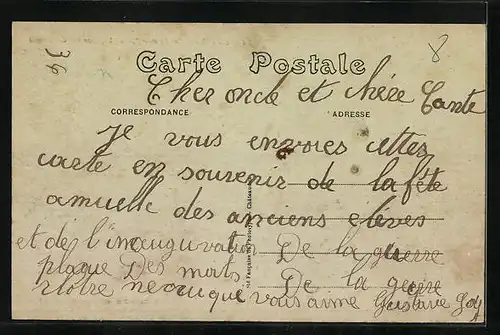 34
8
Carte Postale
Cher oncle et chère Tante
CORRESPONDANCE ADRESSE
Je vous envoies cettes
carte en souvenir de la fête
annuelle des anciens eleves
et de l'inauguration De la
plaque Des morts De la guerre
Votre neveu que vous aime Gustave